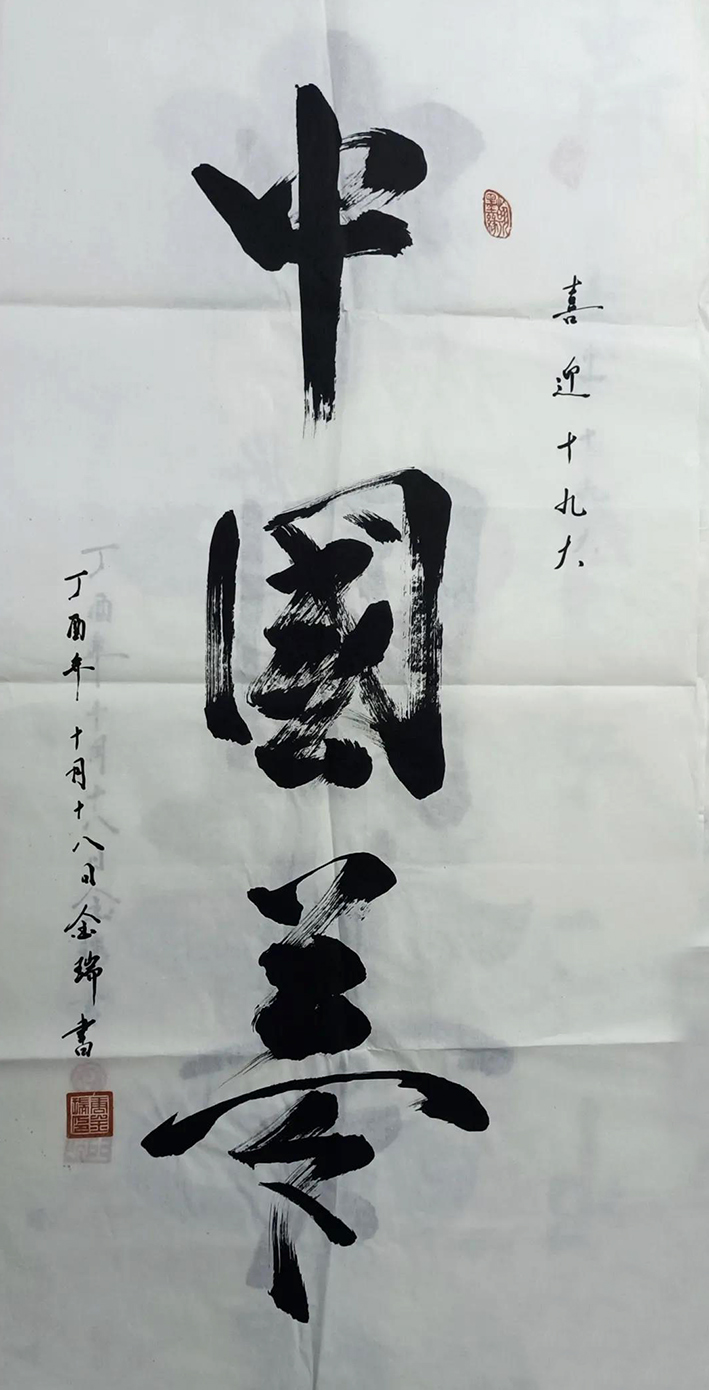 喜迎十九大
中國夢
丁酉年十月十八日金瑞書